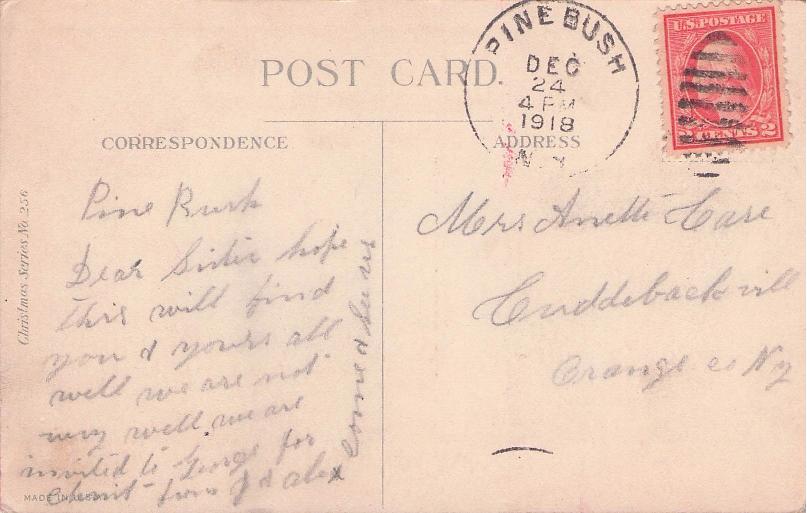 POST CARD.
PINE BUSH
DEC
24
4 PM
1918
N.Y.
U.S. POSTAGE
2 CENTS 2
CORRESPONDENCE
ADDRESS
Christmas Series No 256
Pine Bush
Dear Sister hope
this will find
you & yours all
well we are not
very well we are
invited to George for
from J & Alex
come & see us
MADE IN
Mrs Anette Case
Cuddebackvill
Orange co Ny